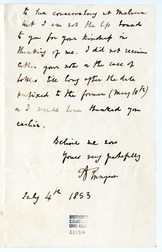 to the conservatory at Melown
but I am not the less bound
to you for your kindness in
thinking of me. I did not receive
either your note or the case of
till long after the date
prefixed to the former (May 10th)
or I would have thanked you
earlier.
Believe me now
Yours very gratefully
July 4th 1853